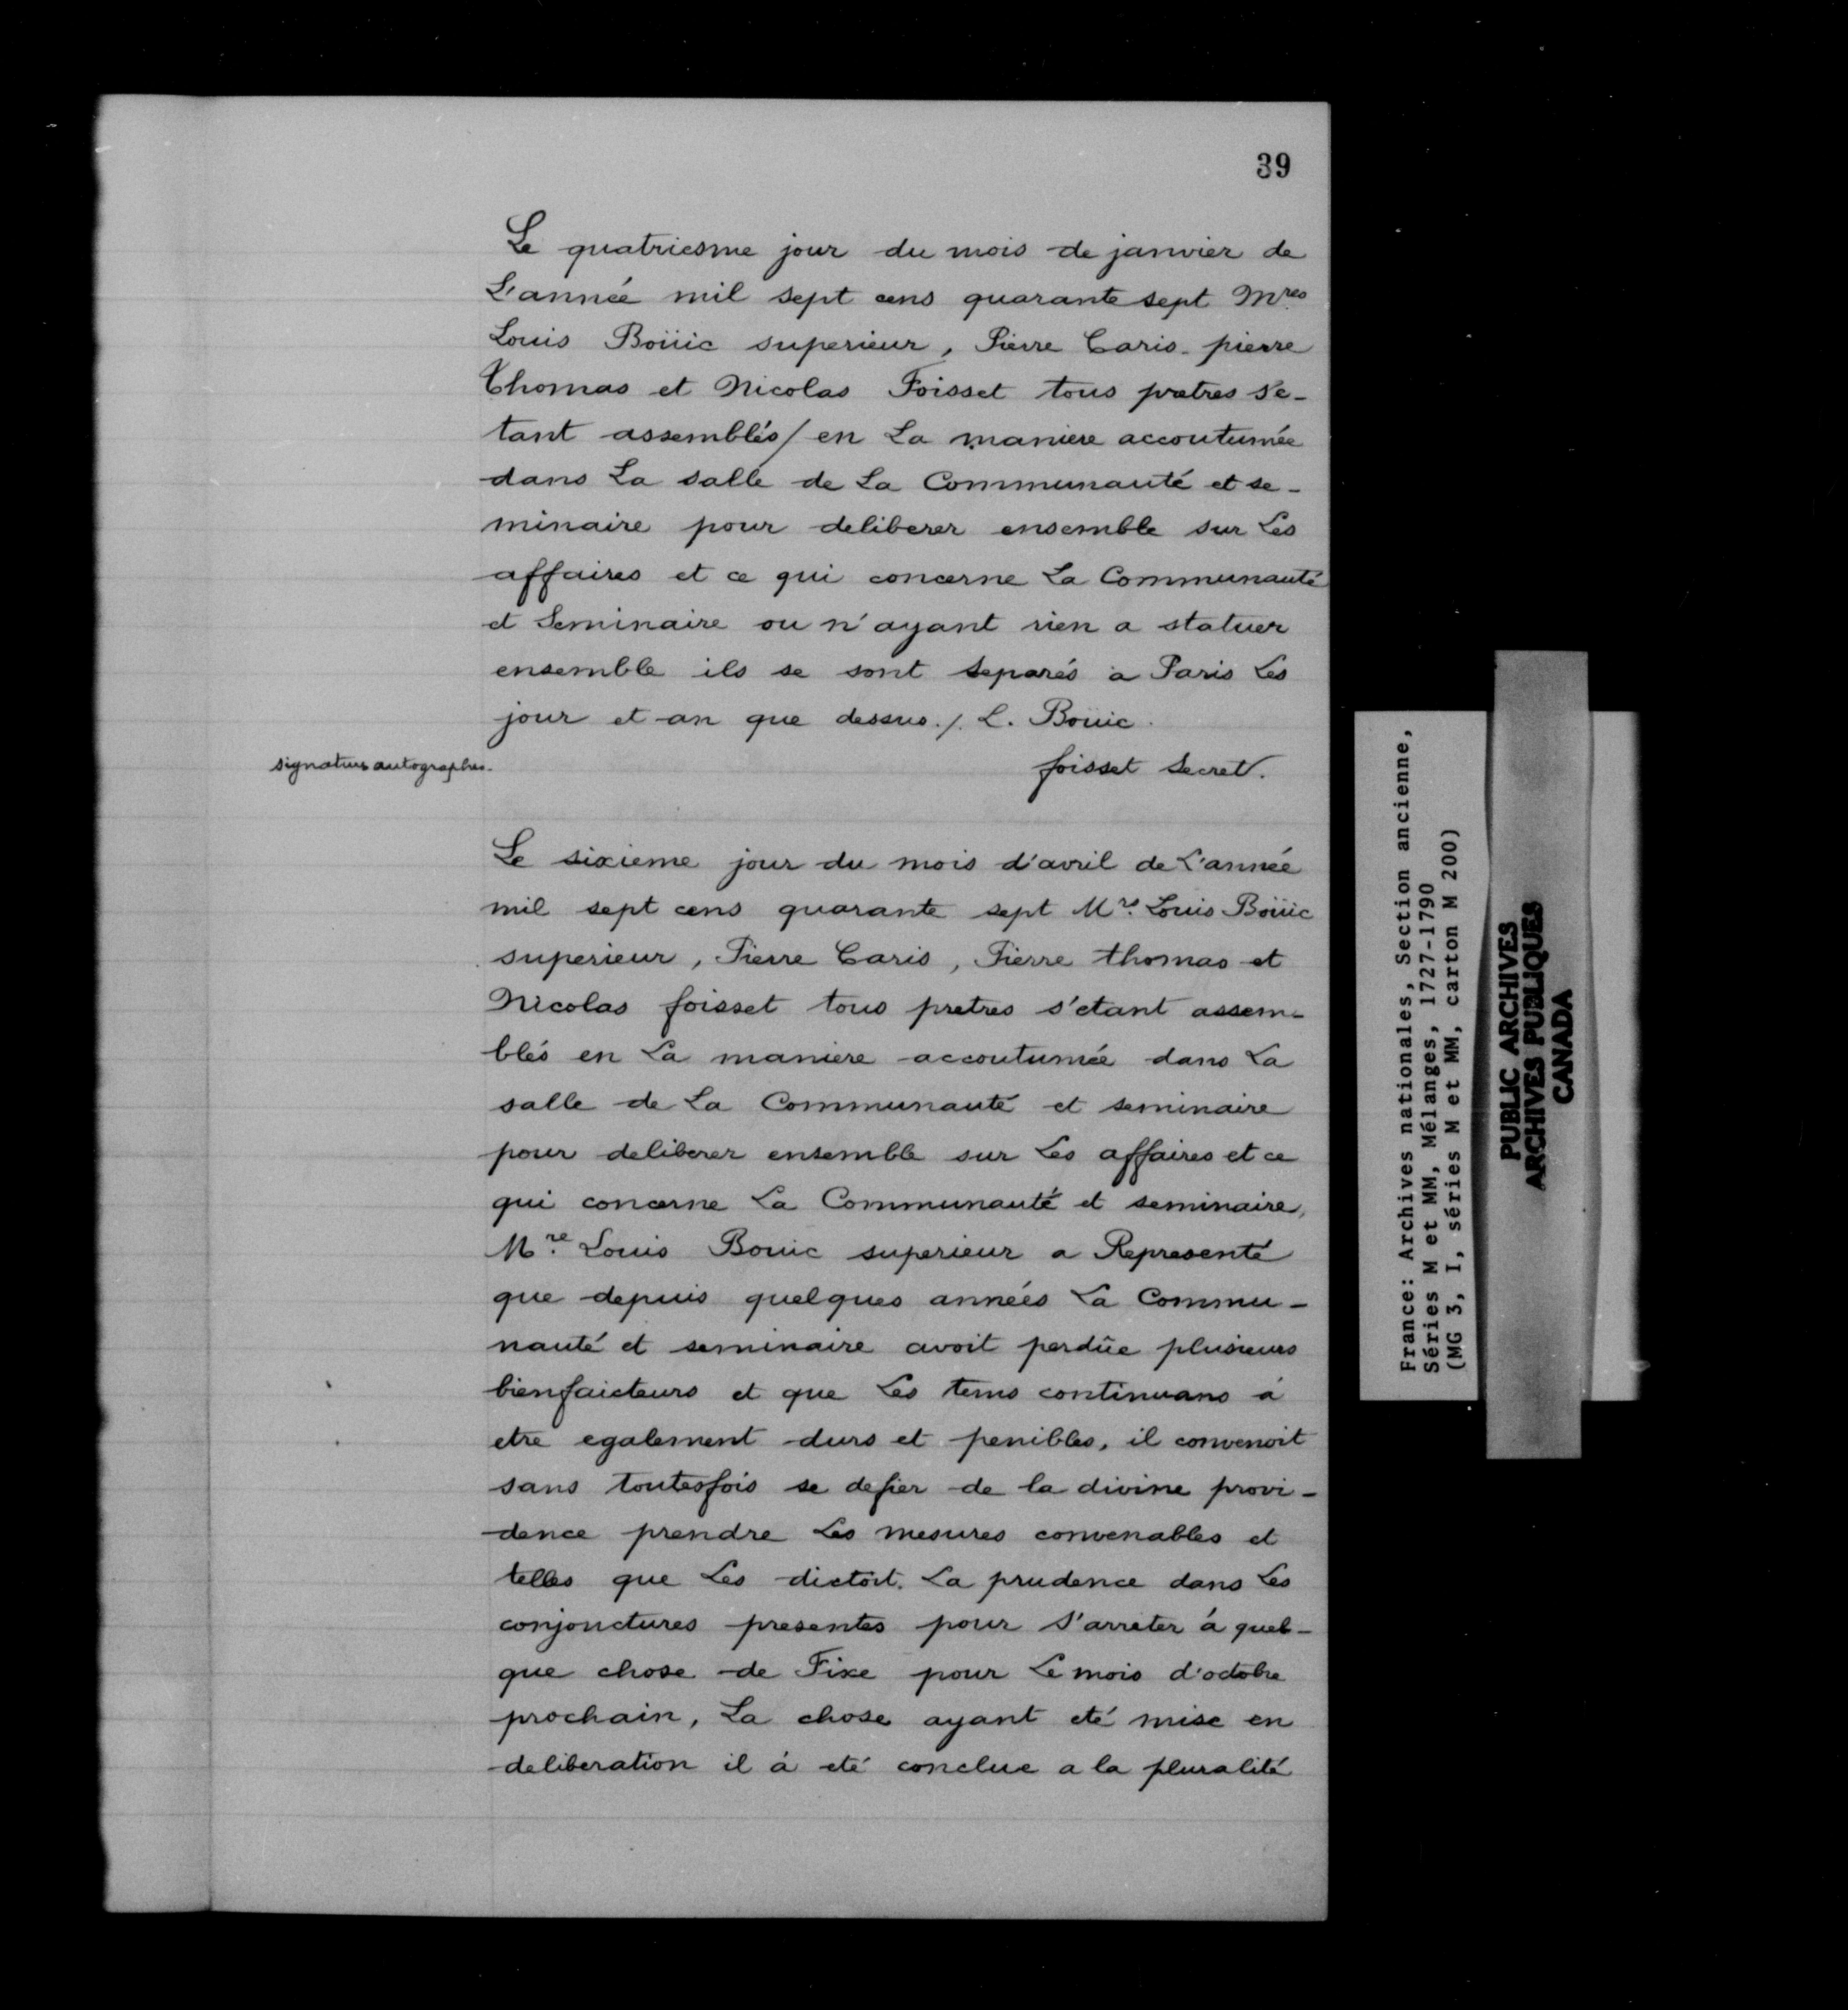 39
Le quatriesme jour du mois de janvier de
L'année mil sept cens quarante sept Mres
Louis Boüic superieur, Pierre Caris. pierre
Thomas et Nicolas Foisset tous pretres s'e-
tant assemblés/ en La maniere accoutumée
dans La salle de La Communauté et se-
minaire pour deliberer ensemble sur Les
affaires et ce qui concerne La Communauté
et Seminaire ou n'ayant rien a statuer
ensemble ils se sont separés à Paris Les
jour et an que dessus./. L. Boüic.
signatures autographes.
foisset Secret.
Le sixieme jour du mois d'avril de L'année
mil sept cens quarante sept Mrs. Louis Boüic
superieur, Pierre Caris, Pierre thomas et
Nicolas foisset tous pretres s'etant assem-
blés en La maniere accoutumée dans La
salle de La Communauté et seminaire
pour deliberer ensemble sur Les affaires et ce
qui concerne La Communauté et seminaire,
Mre. Louis Bouic superieur a Representé
que depuis quelques années La Commu-
nauté et seminaire avoit perdûe plusieurs
bienfaicteurs et que Les tems continuans à
etre egalement durs et penibles, il convenoit
sans toutesfois se defier de la divine provi-
dence prendre Les mesures convenables et
telles que Les dictoit. La prudence dans Les
conjonctures presentes pour s'arreter à quel-
que chose de Fixe pour Le mois d'octobre
prochain, La chose ayant eté mise en
deliberation il à eté conclue a la pluralité
France: Archives nationales, Section ancienne,
Séries M et MM, Mélanges, 1727-1790
(MG 3, I, séries M et MM, carton M 200)
PUBLIC ARCHIVES
ARCHIVES PUBLIQUES
CANADA